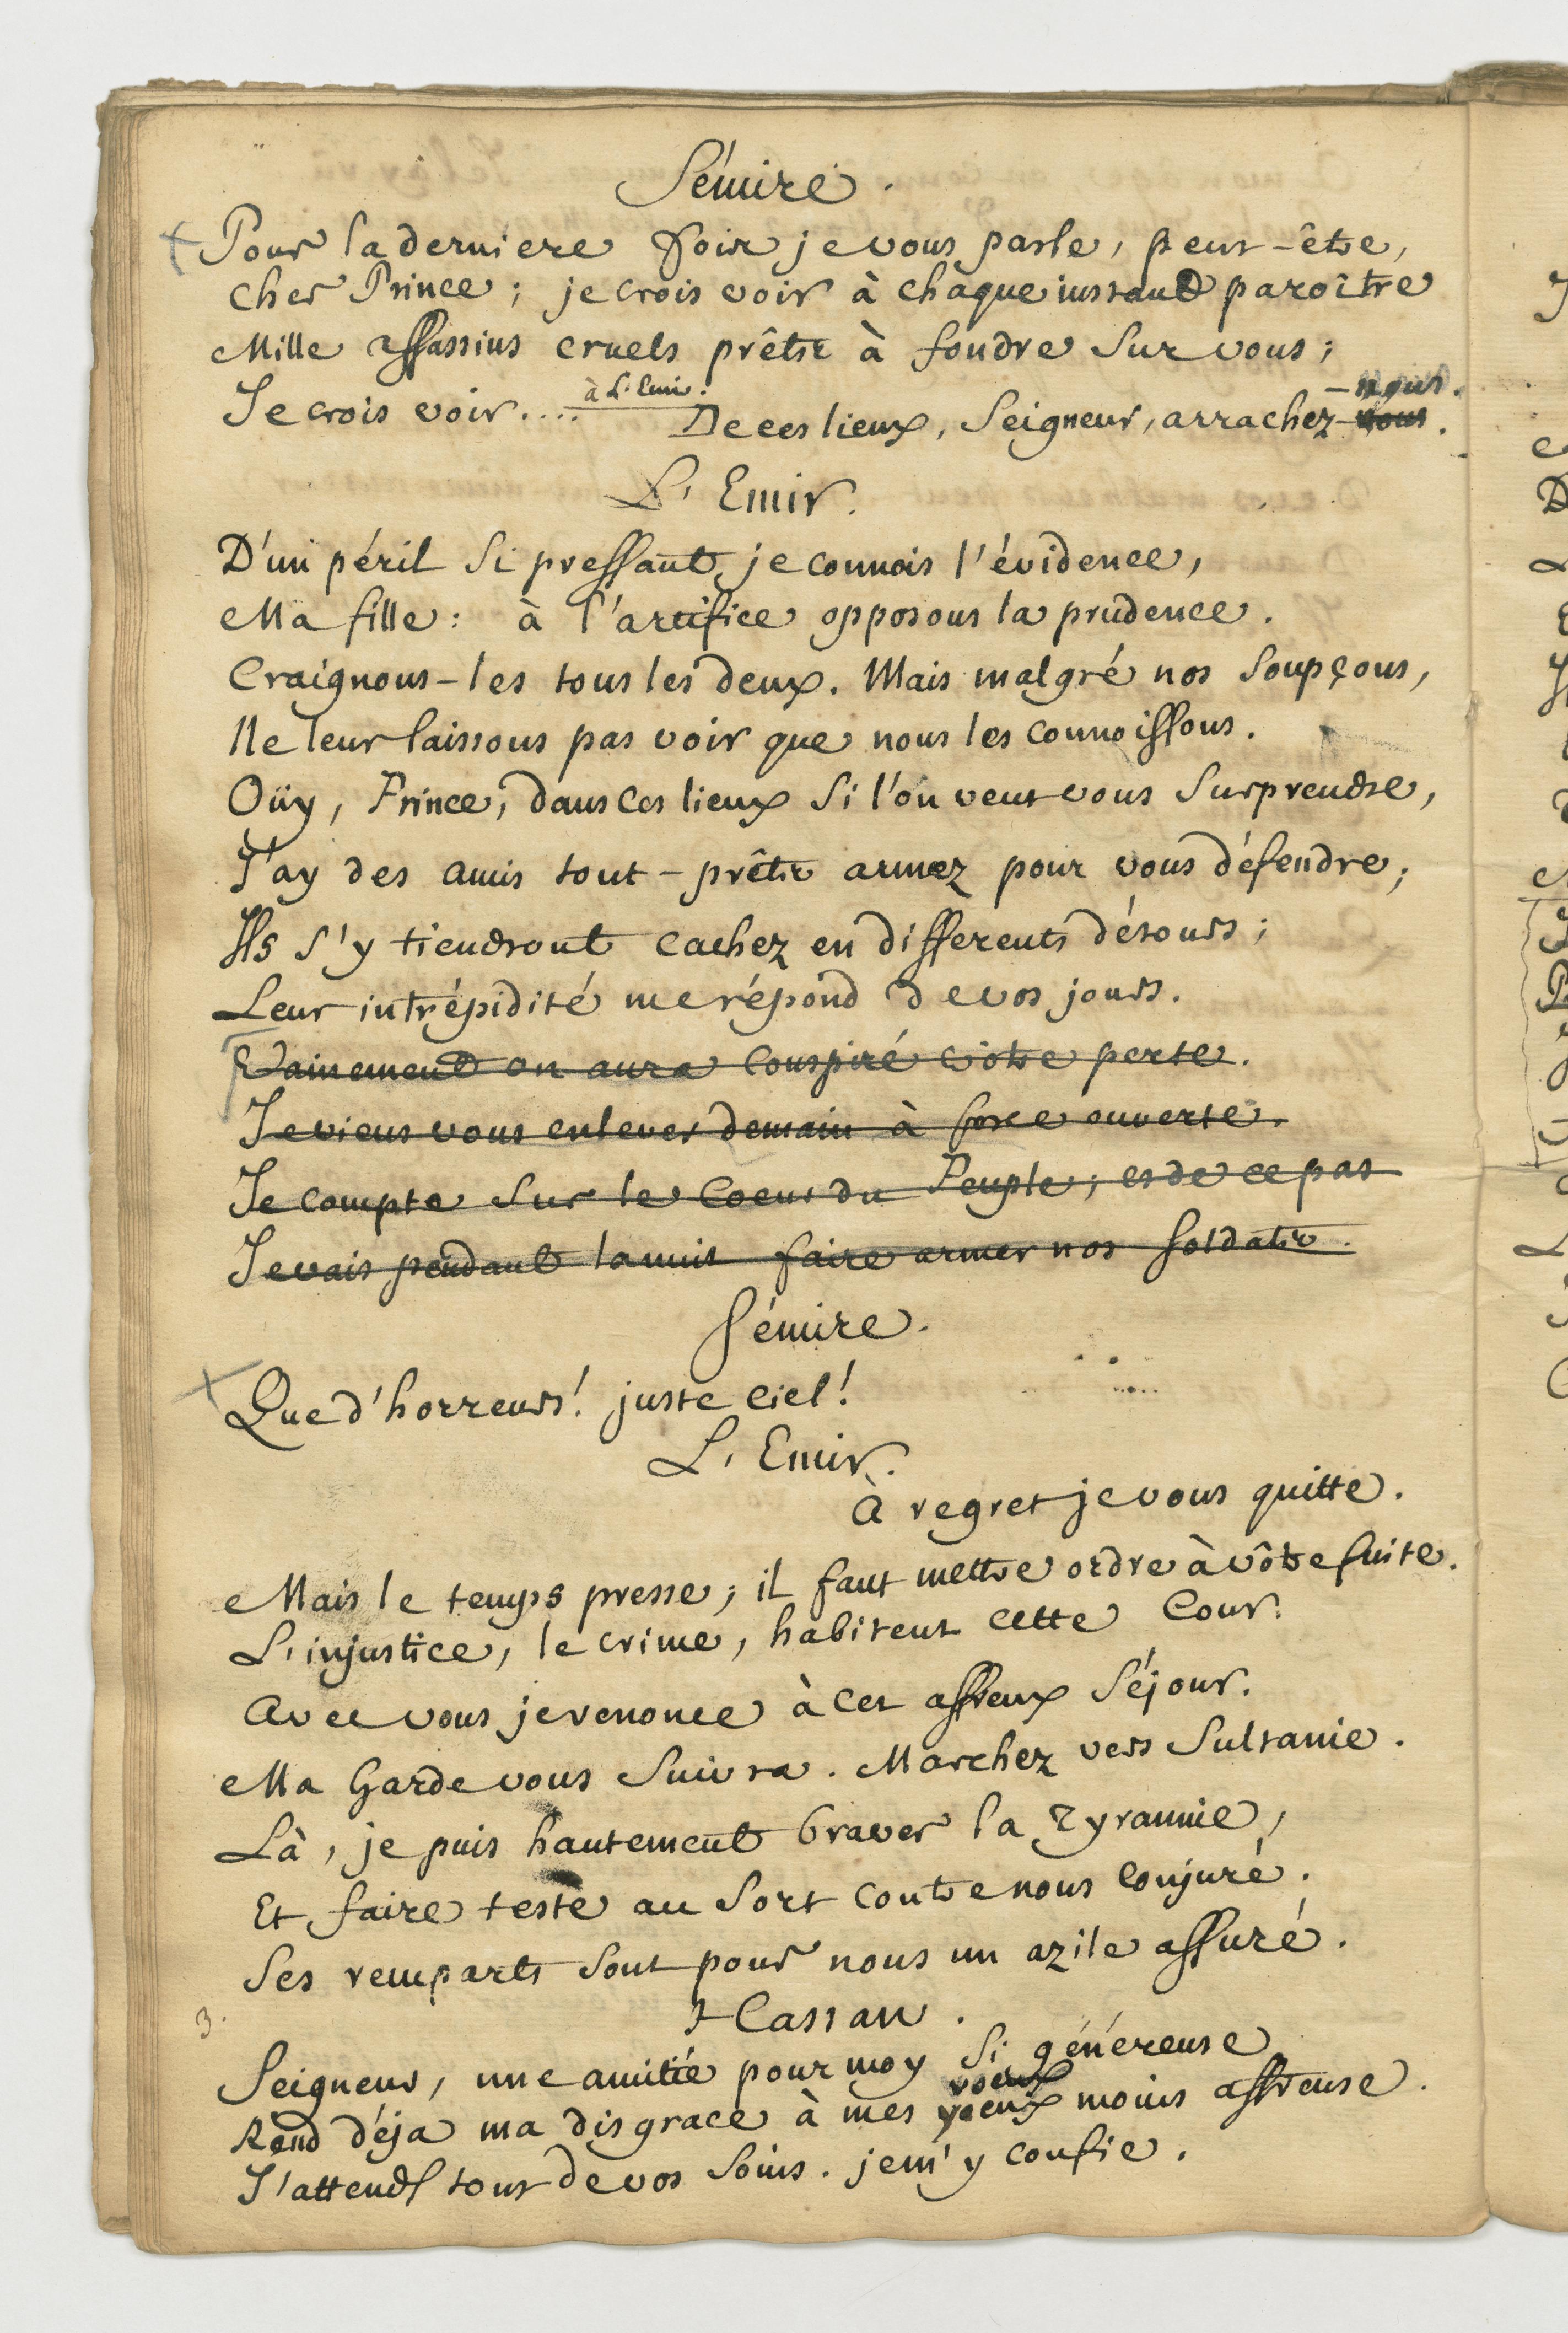 Sémire.
Pour la derniere fois je vous parle, peut-être,
Cher Prince; je crois voir à chaque instant paroître
Mille assassins cruels prêts à fondre sur vous;
à L'Emir. -nous.
Je crois voir.... De ces lieux, Seigneur, arrachez-vous.
L'Emir.
D'un péril si pressant je connois l'évidence,
Ma fille: à l'artifice opposons la prudence.
Craignons-les tous les deux. Mais malgré nos soupçons,
Ne leur laissons pas voir que nous les connoissons.
Oüy, Prince, dans ces lieux si l'on veut vous surprendre,
J'ay des amis tout-prêts armez pour vous défendre;
Ils s'y tiendront cachez en differents détours;
Leur intrépidité me répond de vos jours.
Vainement on aura conspiré vôtre perte.
Je viens vous enlever demain à force ouverte.
Je compte sur le coeur du Peuple; et de ce pas
Je vais pendant la nuit faire armer nos soldats.
Sémire.
Que d'horreurs! juste Ciel!
L'Emir.
à regret je vous quitte.
Mais le temps presse; il faut mettre ordre à vôtre fuite.
L'injustice, le crime, habitent cette Cour.
Avec vous je renonce à cet affreux séjour.
Ma Garde vous suivra. Marchez vers Sultanie.
Là, je puis hautement braver la Tyrannie,
Et faire teste au sort contre nous conjuré.
Ses remparts sont pour nous un azile assuré.
3. Hassan.
Seigneur, une amitié pour moy si généreuse
Rend déja ma disgrace à mes yeux moins affreuse.
J'attends tout de vos soins. je m'y confie.